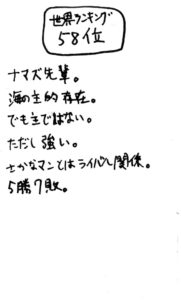 世界ランキング
58位
ナマズ先輩。
海の主的存在。
でも主ではない。
ただし強い。
さかなマンとはライバル関係。
5勝7敗。